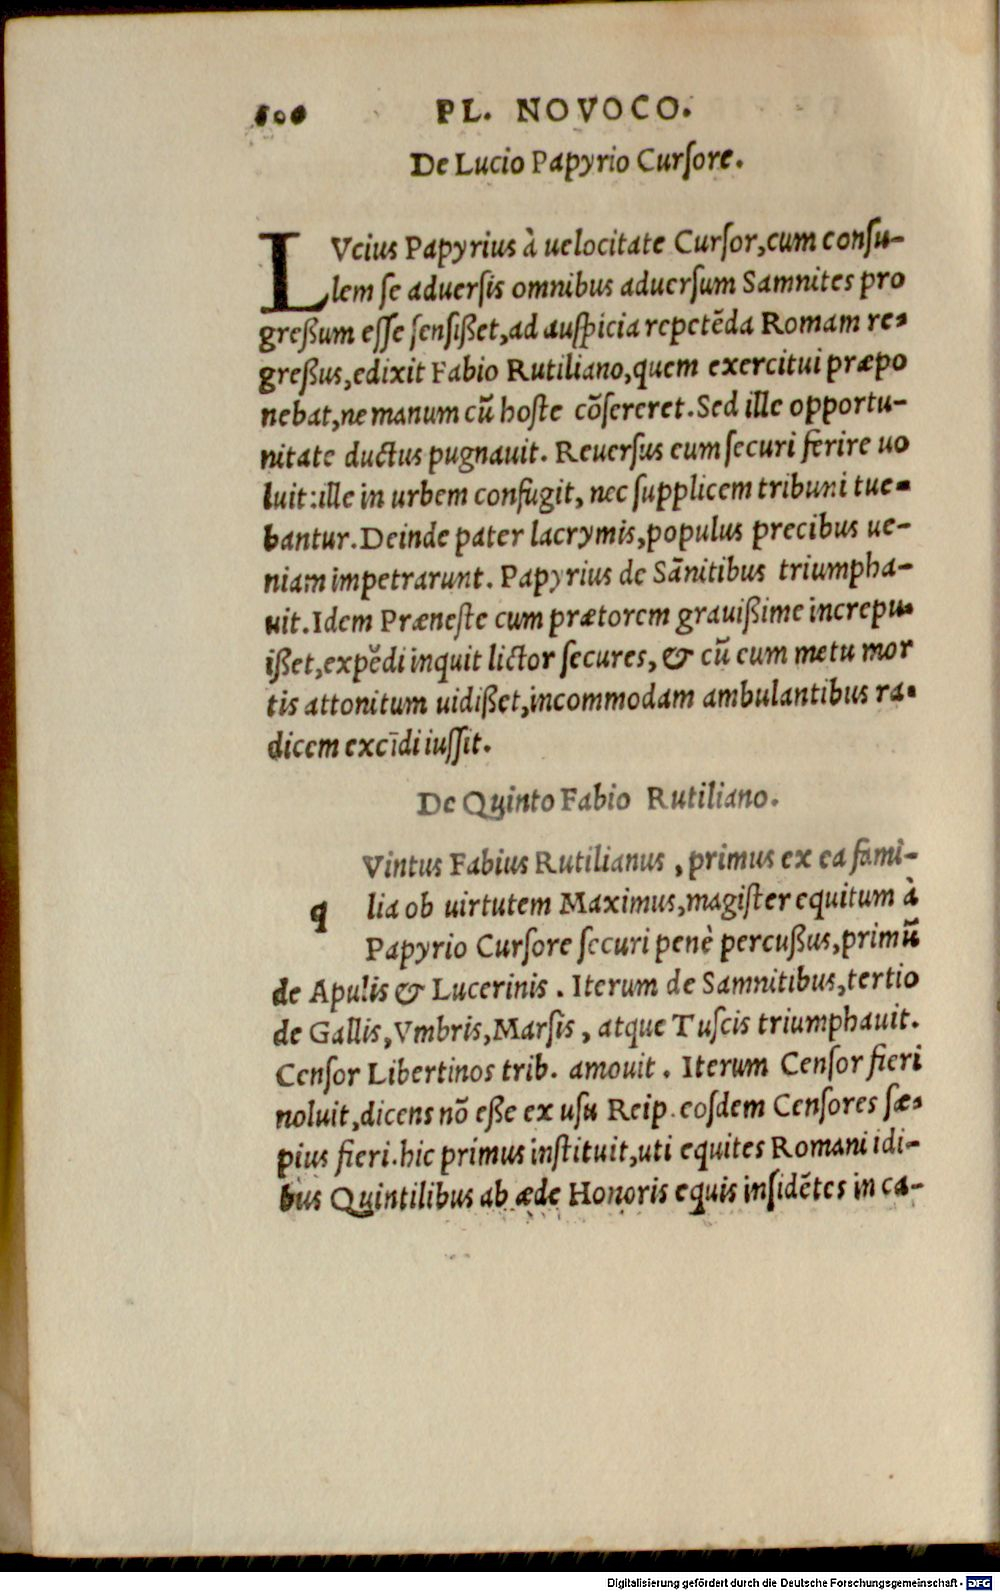 PL. NOVOCO.
De Lucio Papyrio Curſore.
LVcius Papyrius à uelocitate Curſor,cum conſu-
lem ſe aduerſis omnibus aduerſum Samnites pro
greßum eſſe ſenſißet,ad auſpicia repetẽda Romam re-
greßus,edixit Fabio Rutiliano,quem exercitui præpo
nebat,ne manum cũ hoſte cõſereret.Sed ille opportu-
nitate ductus pugnauit. Reuerſus eum ſecuri ferire uo
luit:ille in urbem confugit, nec ſupplicem tribuni tue-
bantur.Deinde pater lacrymis,populus precibus ue-
niam impetrarunt. Papyrius de Sãnitibus triumpha-
uit.Idem Præneſte cum prætorem grauißime increpu-
ißet,expẽdi inquit lictor ſecures, & cũ eum metu mor
tis attonitum uidißet,incommodam ambulantibus ra-
dicem excĩdi iuſſit.
De Quinto Fabio Rutiliano.
Vintus Fabius Rutilianus , primus ex ea fami-
q lia ob uirtutem Maximus,magiſter equitum à
Papyrio Curſore ſecuri penè percußus,primũ
de Apulis & Lucerinis . Iterum de Samnitibus,tertio
de Gallis,Vmbris,Marſis , atque Tuſcis triumphauit.
Cenſor Libertinos trib. amouit . Iterum Cenſor fieri
noluit,dicens nõ eße ex uſu Reip. eoſdem Cenſores ſæ-
pius fieri.hic primus inſtituit,uti equites Romani idi-
bus Quintilibus ab æde Honoris equis inſidẽtes in ca-
Digitalisierung gefördert durch die Deutsche Forschungsgemeinschaft - DFG